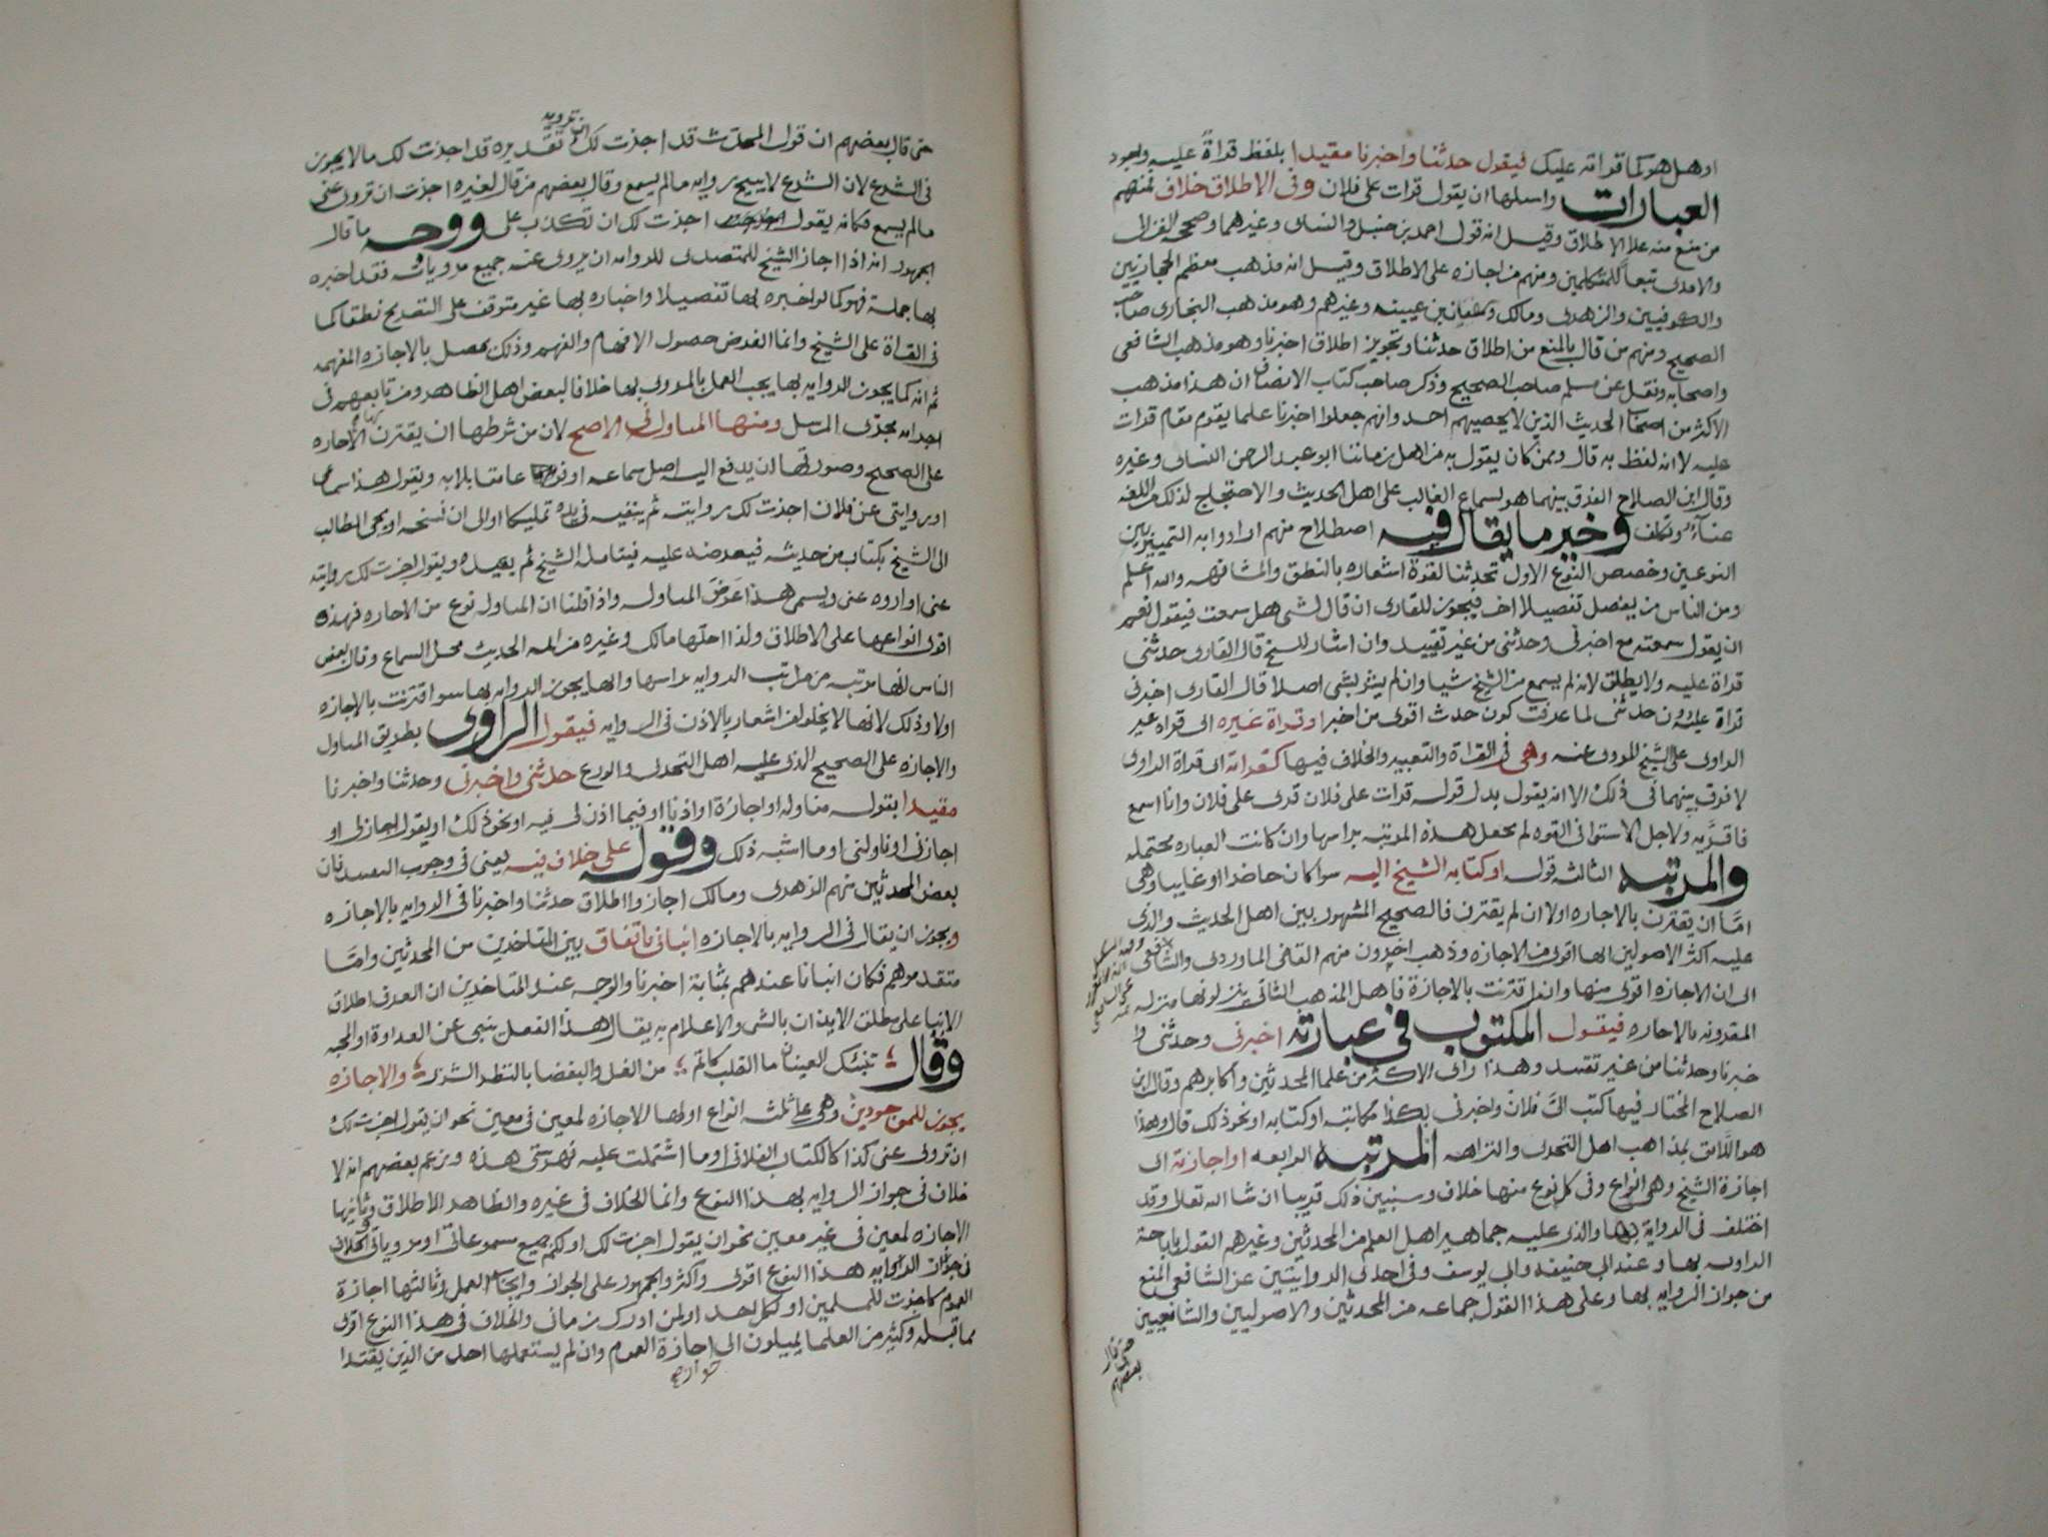 او هل هو كما قراته عليك فيقول حدثنا واخبرنا مقيدا بلفظ قراةً عليه واجود
العبارات واسلمها ان يقول قرات على فلان وفى الاطلاق خلاف فمنهم
من منع منه على الاطلاق وقيل انه قول احمد بن حنبل والنساى وغيرهما وصححه الغزالى
والامدى تبعاً للمتكلمين ومنهم من اجازه على الاطلاق وقيل انه مذهب معظم الحجازيين
والكوفيين والزهرى ومالك وسفيان بن عيينه وغيرهم وهو مذهب البخارى صاحب
الصحيح ومنهم من قال بالمنع من اطلاق حدثنا وتجويز اطلاق اخبرنا وهو مذهب الشافعى
واصحابه ونقل عن مسلم صاحب الصحيح وذكر صاحب كتاب الانصاف ان هذا مذهب
الاكثر من اصحاب الحديث الذين لا يحصيهم احد وانهم جعلوا اخبرنا علما يقوم مقام قرات
عليه لا انه لفظ به قال وممن كان يقول به من اهل زماننا ابو عبد الرحمن النساى وغيره
وقال ابن الصلاح الفرق بينهما هو لسماع الغالب على اهل الحديث والاحتجاج لذلك من اللغه
عناء وتكلف وخير ما يقال فيه اصطلاح منهم ارادوا به التمييز بين
النوعين وخصص النوع الاول بحدثنا لقوة اشعاره بالنطق والمشافهه والله اعلم
ومن الناس من يفصل تفصيلا اخر فيجوز للقارى ان قال لشى هل سمعت فيقول نعم
ان يقول سمعته مع اخبرنى وحدثنى من غير تقييد وان اشار للشيخ قال القارى حدثنى
قراة عليه ولا يطلق لانه لم يسمع من الشيخ شيا وان لم يشر بشى اصلا قال القارى اخبرنى
قراة عليه دون حدثنى لما عرفت كون حدث اقوى من اخبر او قراة غيره اى قراه غير
الراوى على الشيخ المروى عنه وهى فى القراة والتعبير والخلاف فيها كقراته اى قراة الراوى
لا فرق بينهما فى ذلك الا انه يقول بدل قوله قرات على فلان قرى على فلان وانا اسمع
فاقرّ به ولاجل الاستوا فى القوه لم يجعل هذه المرتبه براسها وان كانت العباره محتمله
والمرتبه الثالثه قوله او كتابه الشيخ اليه سوا كان حاضرا او غايبا وهى
امّا ان يقترن بالاجازه اولا ان لم يقترن فالصحيح المشهور بين اهل الحديث والذى
عليه اكثر الاصوليين انها اقوى من الاجازه وذهب اخرون منهم القاضى الماوردى والشافعى
الى ان الاجازه اقوى منها وان اقترنت بالاجازة فاهل المذهب الثانى ينزلونها منزله
المقرونه بالاجازه فيقول المكتوب فى عبارته اخبرنى وحدثنى وا
خبرنا وحدثنا من غير تقييد وهذا راى الاكثر من علما المحدثين واكابرهم وقال ابن
الصلاح المختار فيها كتب الىّ فلان واخبرنى بكذا مكاتبه او كتابه او نحو ذلك قال وهذا
هو اللائق بمذاهب اهل التحرى والنزاهه المرتبه الرابعه او اجازته اى
اجازة الشيخ وهى انواع وفى كل نوع منها خلاف وسنبين ذلك قريبا ان شا الله تعالى وقد
اختلف فى الرواية بها والذى عليه جماهير اهل العلم من المحدثين وغيرهم القول باباحة
الروايه بها وعند ابى حنيفه وابى يوسف وفى احدى الروايتين عن الشافعى المنع
من جواز الروايه بها وعلى هذا القول جماعه من المحدثين والاصوليين والشافعيين
حتى قال
بعضهم
ان ترويه
حتى قال بعضهم ان قول المحدث قد اجزت لك تقديره قد اجزت لك ما لا يجوز
فى الشرع لان الشرع لا يبيح روايه ما لم يسمع وقال بعضهم من قال لغيره اجزت ان تروى عنى
ما لم يسمع فكانه يقول اجزت لك ان تكذب على ووجه ما قال
الجمهور انه اذا اجاز الشيخ للمتصدى للروايه ان يروى عنه جميع مروياته فقد اخبره
بها جملة فهو كما لو اخبره بها تفصيلا واخباره بها غير متوقف على التصريح نطقا كما
فى القراة على الشيخ وانما الغرض حصول الافهام والفهم وذلك يحصل بالاجازه المفهمه
ثم انه كما يجوز الروايه بها يجب العمل بالمروى بها خلافا لبعض اهل الظاهر ومن تابعهم فى
اجرايه مجرى المرسل ومنها المناوله فى الاصح لان من شرطها ان يقترن بها الاجازه
على الصحيح وصورتها ان يدفع اليه اصل سماعه او فرعا مقابلا به ويقول هذا سماعى
او روايتى عن فلان اجزت لك روايته ثم يبقيه فى يده تمليكا او الى ان نسخه او يجى الطالب
الى الشيخ بكتاب من حديثه فيعرضه عليه فيتامله الشيخ ثم يعيده ويقول اجزت لك روايته
عنى او اروه عنى ويسمى هذا عرض المناوله واذا قلنا ان المناوله نوع من الاجازه فهذه
اقوى انواعها على الاطلاق ولذا احلّها مالك وغيره من ايمه الحديث محل السماع وقال بعض
الناس انها مرتبه من مراتب الروايه براسها وانها يجوز الروايه بها سوا اقترنت بالاجازه
اولا وذلك لانها لا يخلو من اشعار بالاذن فى الروايه فيقول الراوى بطريق المناوله
والاجازه على الصحيح الذى عليه اهل التحرى والورع حدثنى واخبرنى وحدثنا واخبرنا
مقيدا بقوله مناوله او اجازة او اذنا او فيما اذن لى فيه او نحو ذلك او يقول اجاز لى او
اجازنى او ناولنى او ما اشبه ذلك وقوله على خلاف فيه يعنى فى وجوب التقييد فان
بعض المحدثين منهم الزهرى ومالك اجازوا اطلاق حدثنا واخبرنا فى الروايه بالاجازه
ويجوز ان يقال فى الروايه بالاجازه انبانى باتفاق بين المتاخرين من المحدثين وامّا
متقدموهم فكان انبانا عندهم بمثابة اخبرنا والوجه عند المتاخرين ان العرف اطلاق
الانبا على مطلق الايذان بالشى والاعلام به يقال هذا الفعل ينبى عن العداوة او المحبه
وقال تنبئك العينان ما القلب كاتم من الغل والبغضا بالنظر الشزر والاجازه
يجوز للموجودين وهى على ثلثه انواع اولها الاجازه لمعين فى معين نحو ان يقول اجزت لك
ان تروى عنى كذا كالكتاب الفلانى او ما اشتملت عليه فهرستى هذه وزعم بعضهم انه لا
خلاف فى جواز الروايه بهذا النوع وانما الخلاف فى غيره والظاهر الاطلاق وثانيها
الاجازه لمعين فى غير معين نحو ان يقول اجزت لك او لكم جميع مسموعاتى او مروياتى والخلاف
فى جواز الروايه هذا النوع اقوى واكثر والجمهور على الجواز وايجاب العمل وثالثها اجازة
العموم كاجزت للمسلمين او لكل احد او لمن ادرك زمانى والخلاف فى هذا النوع اقوى
مما قبله وكثير من العلما يميلون الى اجازة العموم وان لم يستعملها احد من الذين يقتدا